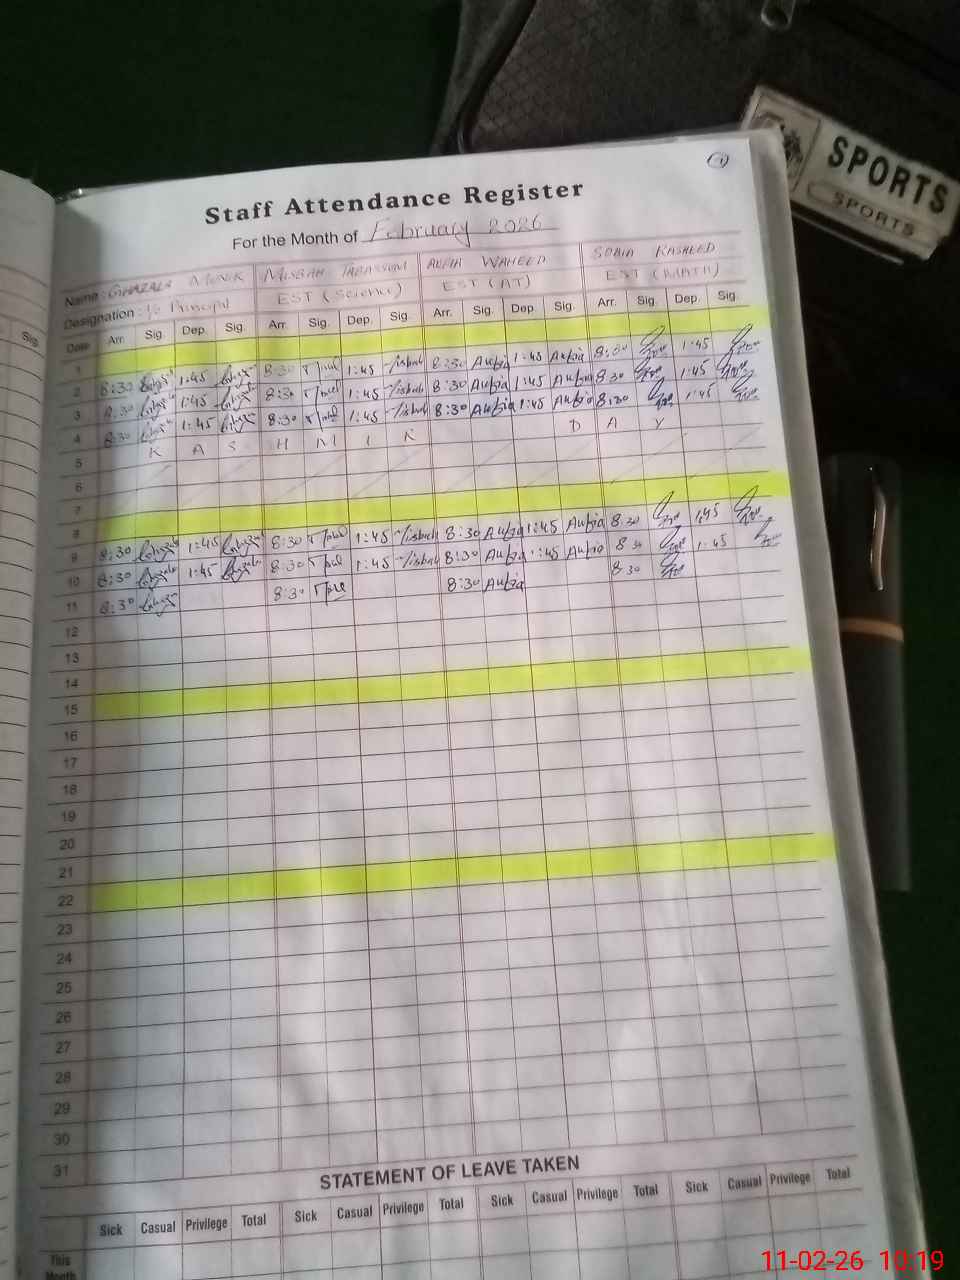 SPORTS
SPORTS
1
Staff Attendance Register
For the Month of February 2026
Name: GHAZALA MUNIR MISBAH TABASSUM AUFIA WAHEED SOBIA RASHEED
Designation: I/c Principal EST (Science) EST (AT) EST (MATH)
Date Arr. Sig. Dep. Sig. Arr. Sig. Dep. Sig. Arr. Sig. Dep. Sig. Arr. Sig. Dep. Sig.
1
2 8:30 1:45 8:30 1:45 Misbah 8:30 Aufia 1:45 Aufia 8:30 1:45
3 8:30 1:45 8:30 1:45 Misbah 8:30 Aufia 1:45 Aufia 8:30 1:45
4 8:30 1:45 8:30 1:45 Misbah 8:30 Aufia 1:45 Aufia 8:30 1:45
5 K A S H M I R D A Y
6
7
8
9 8:30 1:45 8:30 1:45 Misbah 8:30 Aufia 1:45 Aufia 8:30 1:45
10 8:30 1:45 8:30 1:45 Misbah 8:30 Aufia 1:45 Aufia 8:30 1:45
11 8:30 8:30 8:30 Aufia 8:30
12
13
14
15
16
17
18
19
20
21
22
23
24
25
26
27
28
29
30
31
STATEMENT OF LEAVE TAKEN
Sick Casual Privilege Total Sick Casual Privilege Total Sick Casual Privilege Total Sick Casual Privilege Total
This
Month
11-02-26 10:19